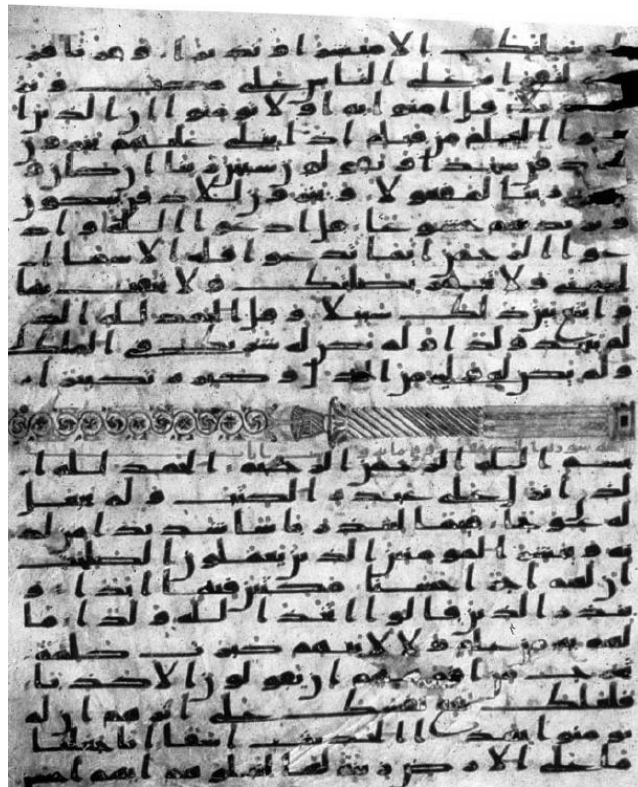 ل وما ارسلنك الا مبشرا ونذيرا وقرانا فر
قنه لتقراه على الناس على مكث ونز
لنه تنزيلا قل امنوا به او لا تومنوا ان الذين ا
وتوا العلم من قبله اذا يتلى عليهم يخرو
سجدا ويقولون سبحن ربنا ان كان و
عد ربنا لمفعولا ويخرون للاذقن يبكون
ويزيدهم خشوعا قل ادعوا الله او اد
عوا الرحمن ايا ما تدعوا فله الاسما ا
لحسنى ولا تجهر بصلتك ولا تخفت بها
وابتغ بين ذلك سبيلا وقل الحمد لله الذي
لم يتخذ ولدا ولم يكن له شريك في الملك
ولم يكن له ولي من الذل وكبره تكبيرا
بسم الله الرحمن الرحيم الحمد لله ا
لذي انزل على عبده الكتب ولم يجعل
له عوجا قيما لينذر باسا شديدا من لد
نه ويبشر المومنين الذين يعملون الصلحت
ان لهم اجرا حسنا مكثين فيه ابدا و
ينذر الذين قالوا اتخذ الله ولدا ما
لهم به من علم ولا لابائهم كبرت كلمة
تخرج من افوههم ان يقولون الا كذبا
فلعلك بخع نفسك على اثرهم ان لم
يومنوا بهذا الحديث اسفا انا جعلنا
ما على الارض زينة لها لنبلوهم ايهم احسن